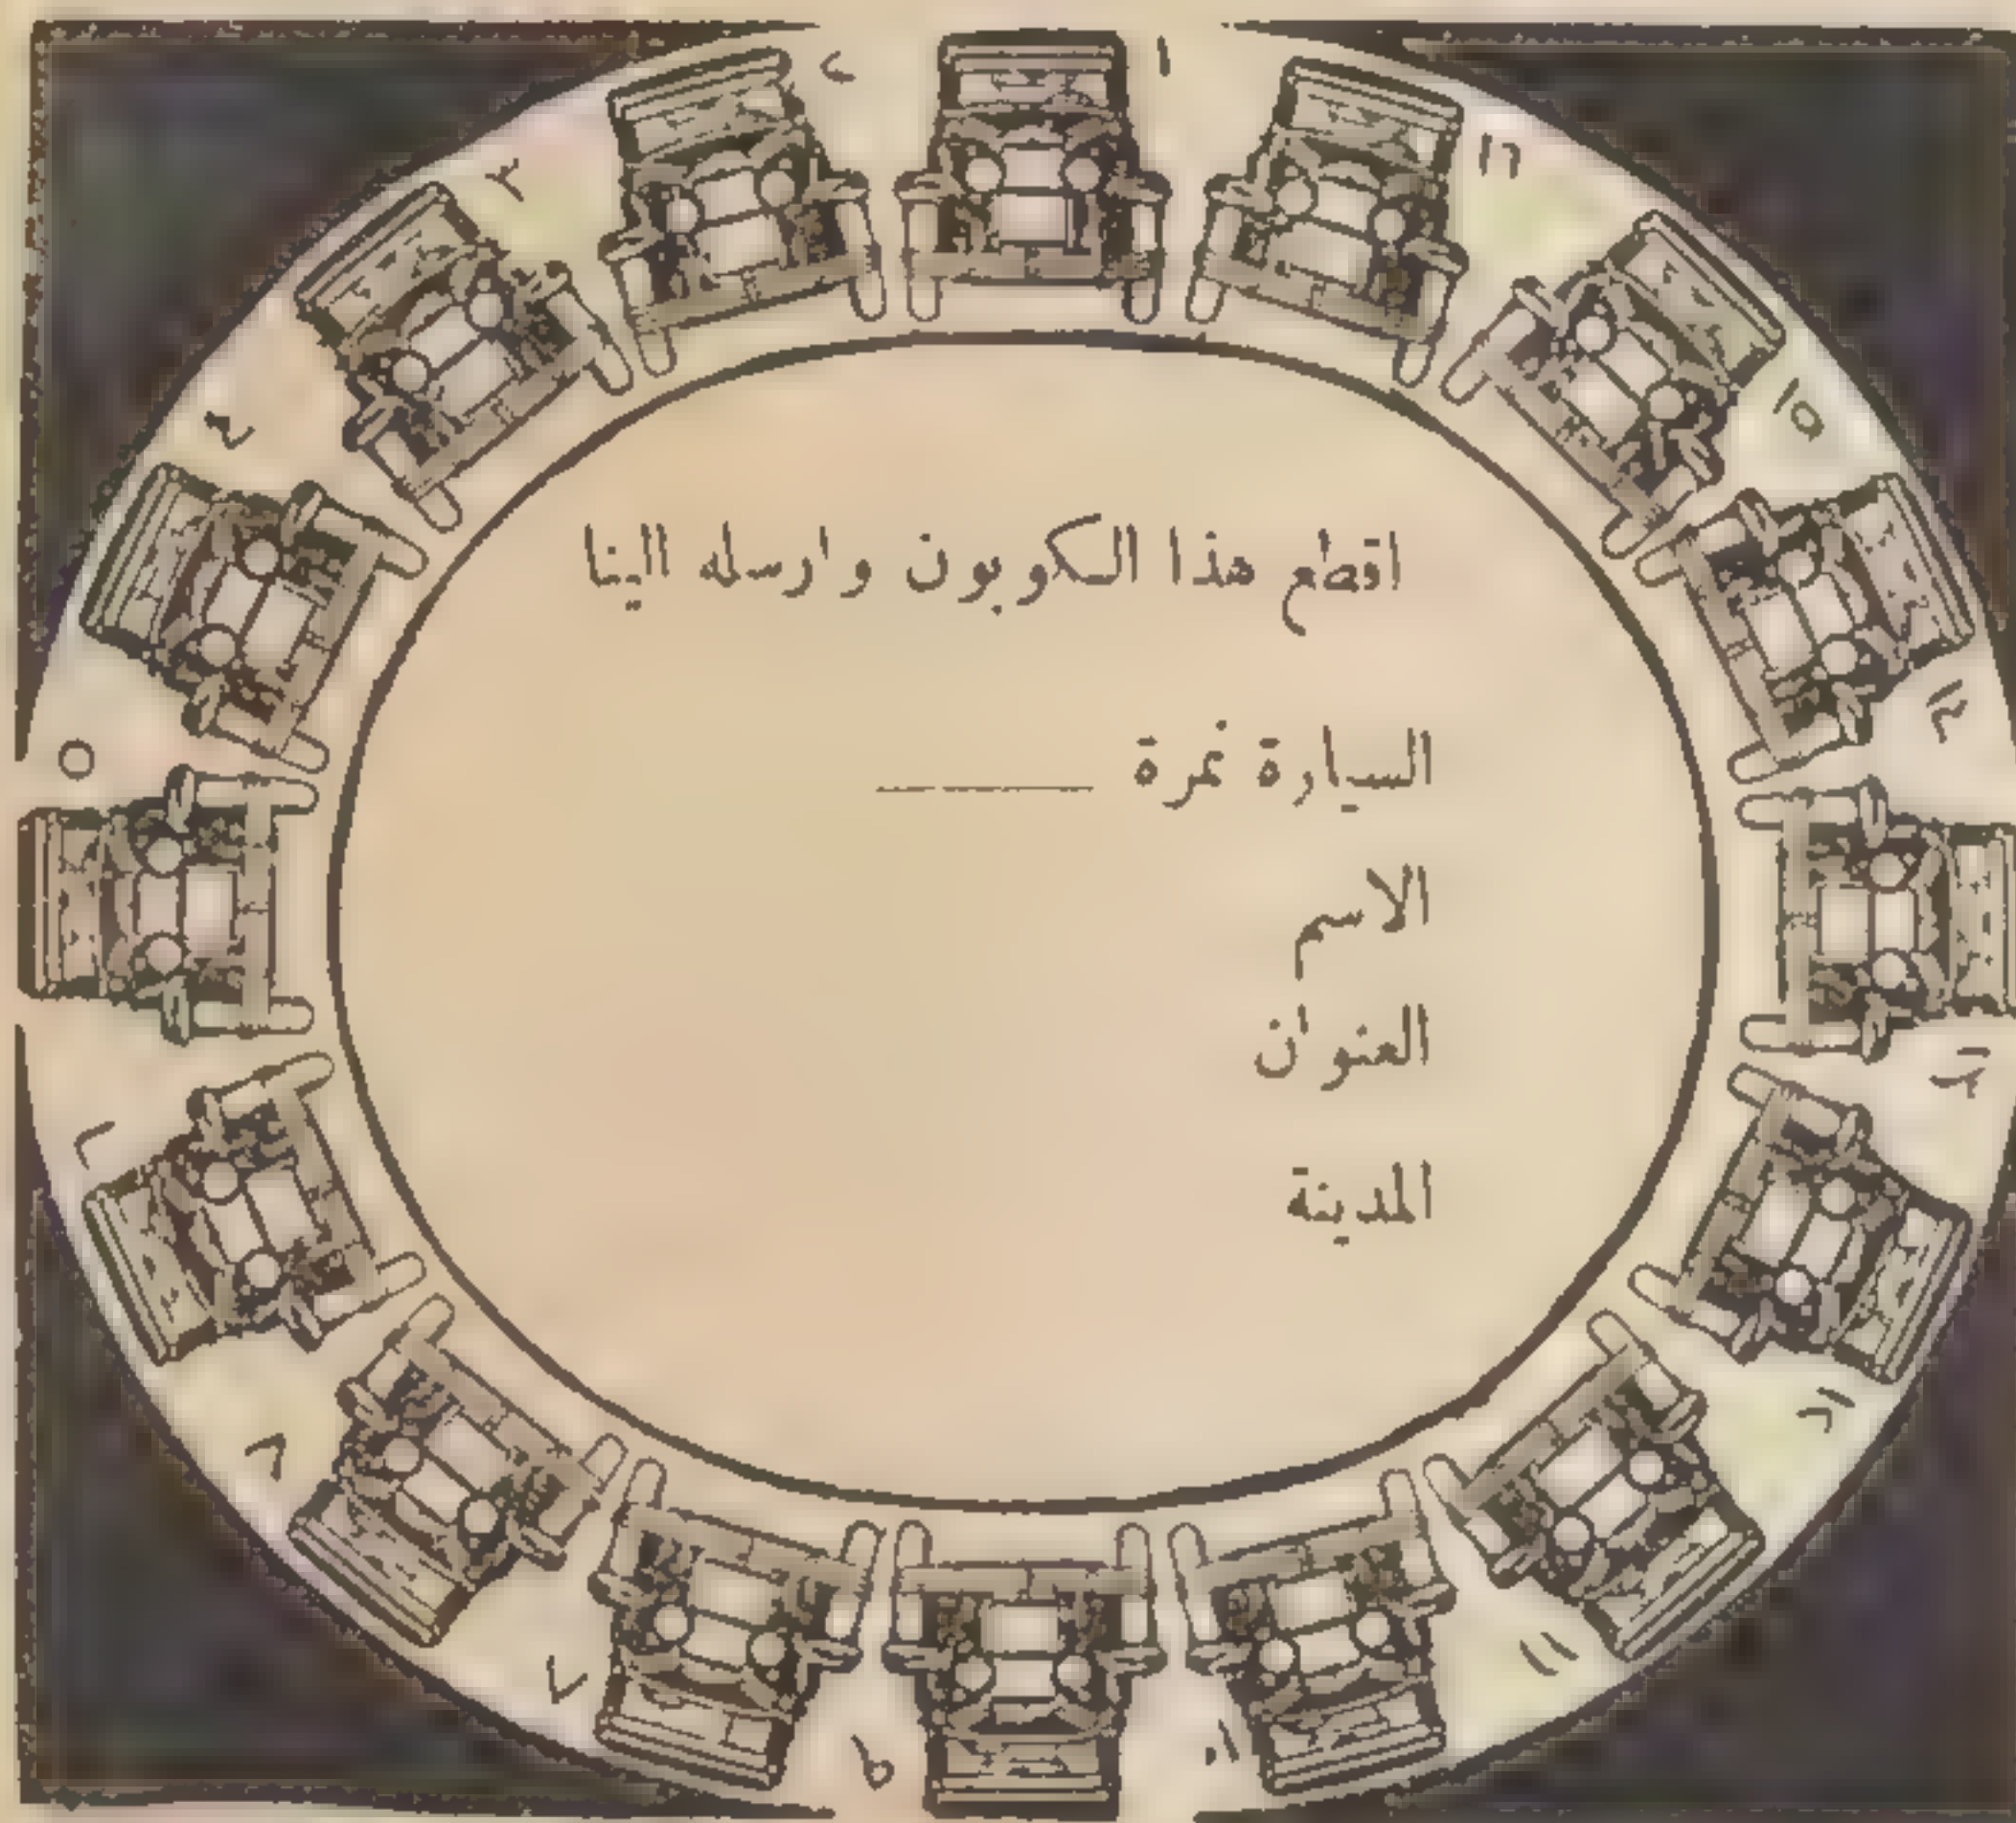 ١
٢
٣
٤
٥
٦
٧
٨
٩
١٠
١١
١٢
١٣
١٤
١٥
١٦
اقطع هذا الكوبون وارسله الينا
السيارة نمرة ______
الاسم
العنوان
المدينة